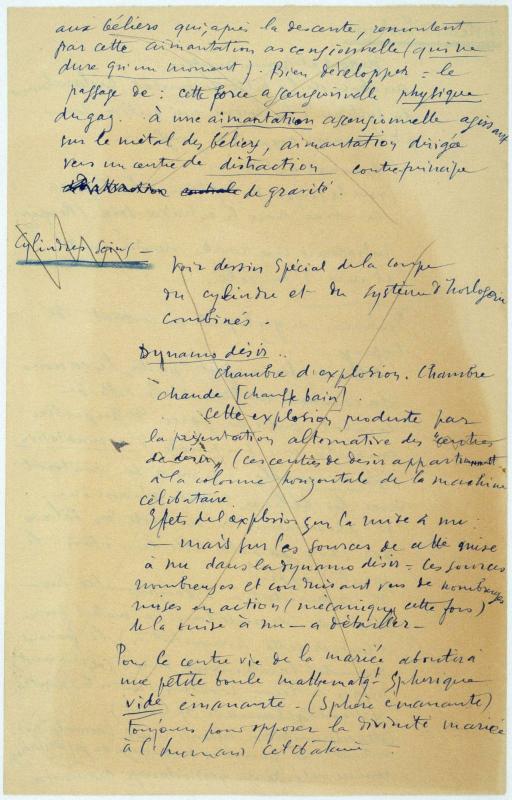 aux béliers qui, après la descente, remontent
par cette aimantation ascensionnelle (qui ne
dure qu'un moment). Bien développer = le
passage de : cette force ascensionnelle physique
du gaz. à une aimantation ascensionnelle agissant
sur le métal des béliers, aimantation dirigée
vers un centre de distraction contreprincipe
centrale de gravité.
Cylindres seins —
Voir dessin spécial de la coupe
du cylindre et du système d'horlogerie
combinés.
Dynamo désir.
Chambre d'explosion. Chambre
chaude [chauffe bain].
Cette explosion produite par
la présentation alternative des "centres
de désir", (ces centres de désir appartiennent
à la colonne horizontale de la machine
célibataire
Effets de l'explosion sur la mise à nu.
— mais sur les sources de cette mise
à nu dans la dynamo désir = ces sources
nombreuses et conduisant vers de nombreuses
mises en action (mécanique cette fois)
de la mise à nu — à détailler —
Pour le centre vie de la mariée aboutir à
une petite boule mathémat! Sphérique
vide émanante. (Sphère émanante)
Toujours pour opposer la divinité mariée
à l'humain célibataire